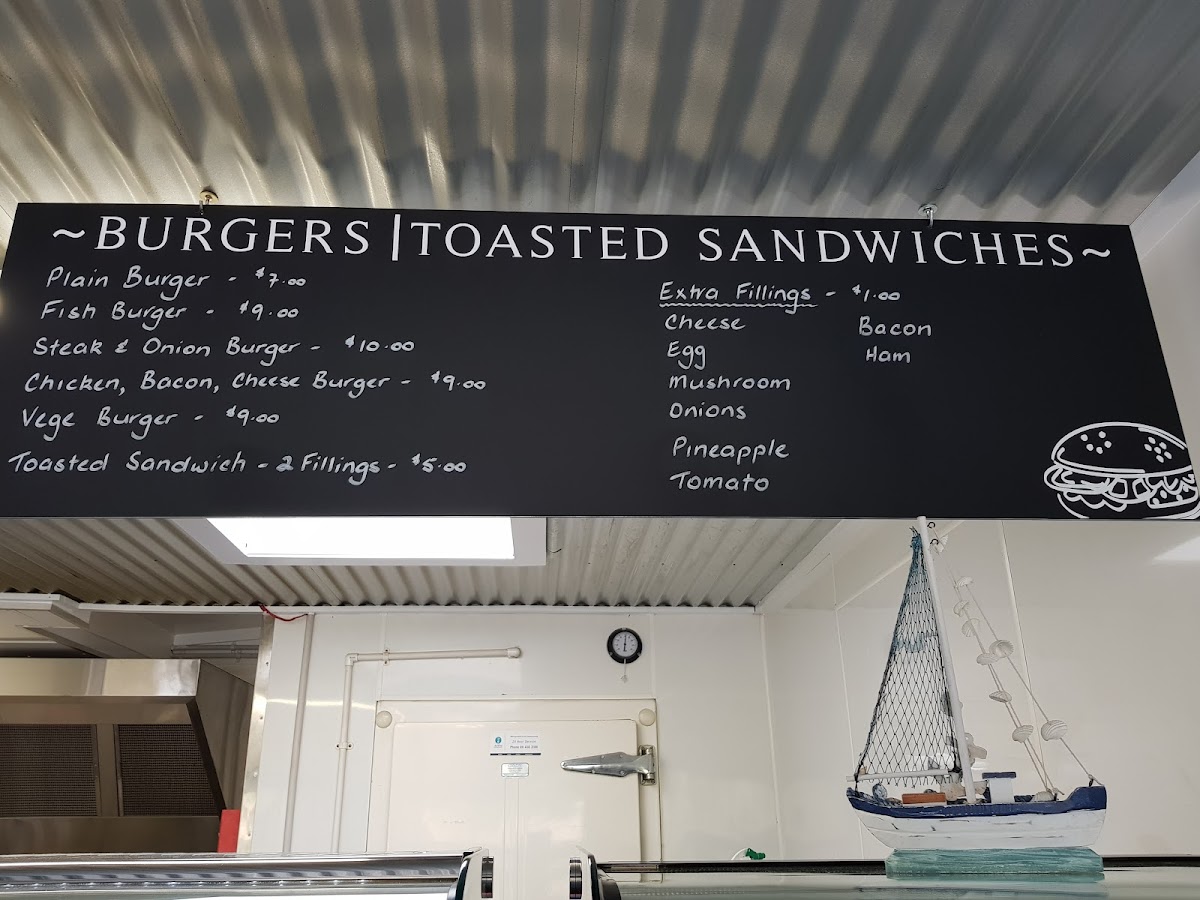 ~BURGERS|TOASTED SANDWICHES~
Plain Burger - $7.00
Fish Burger - $9.00
Steak & Onion Burger - $10.00
Chicken, Bacon, Cheese Burger - $9.00
Vege Burger - $9.00
Toasted Sandwich - 2 Fillings - $5.00
Extra Fillings - $1.00
Cheese
Egg
Mushroom
Onions
Pineapple
Tomato
Bacon
Ham